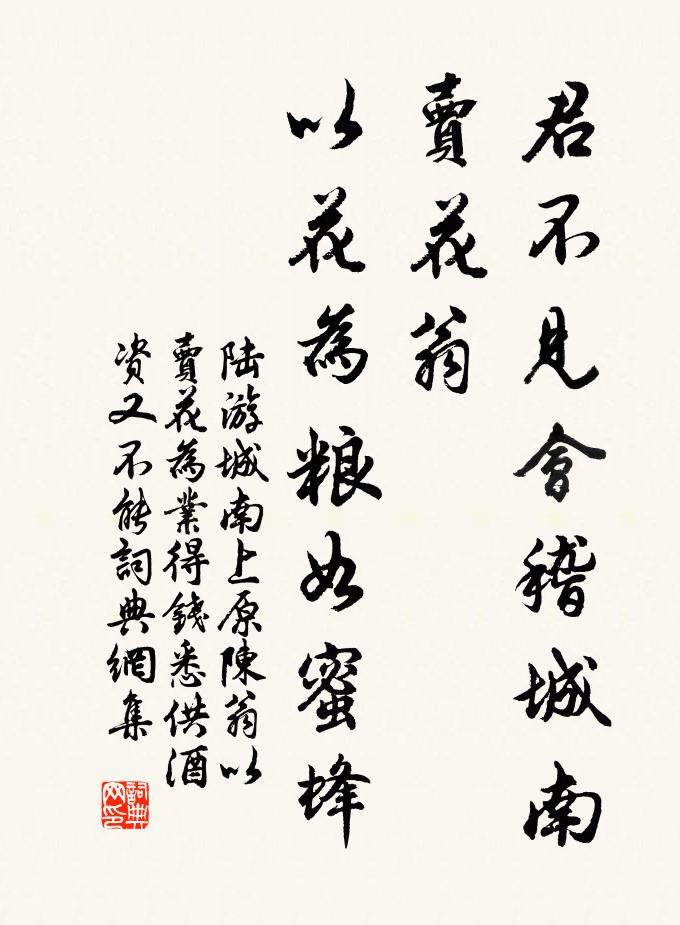 君不見會稽城南
賣花翁
以花為粮如蜜蜂
陆游城南上原陳翁以
賣花為業得錢悉供酒
资又不能詞典網集
詞典网印